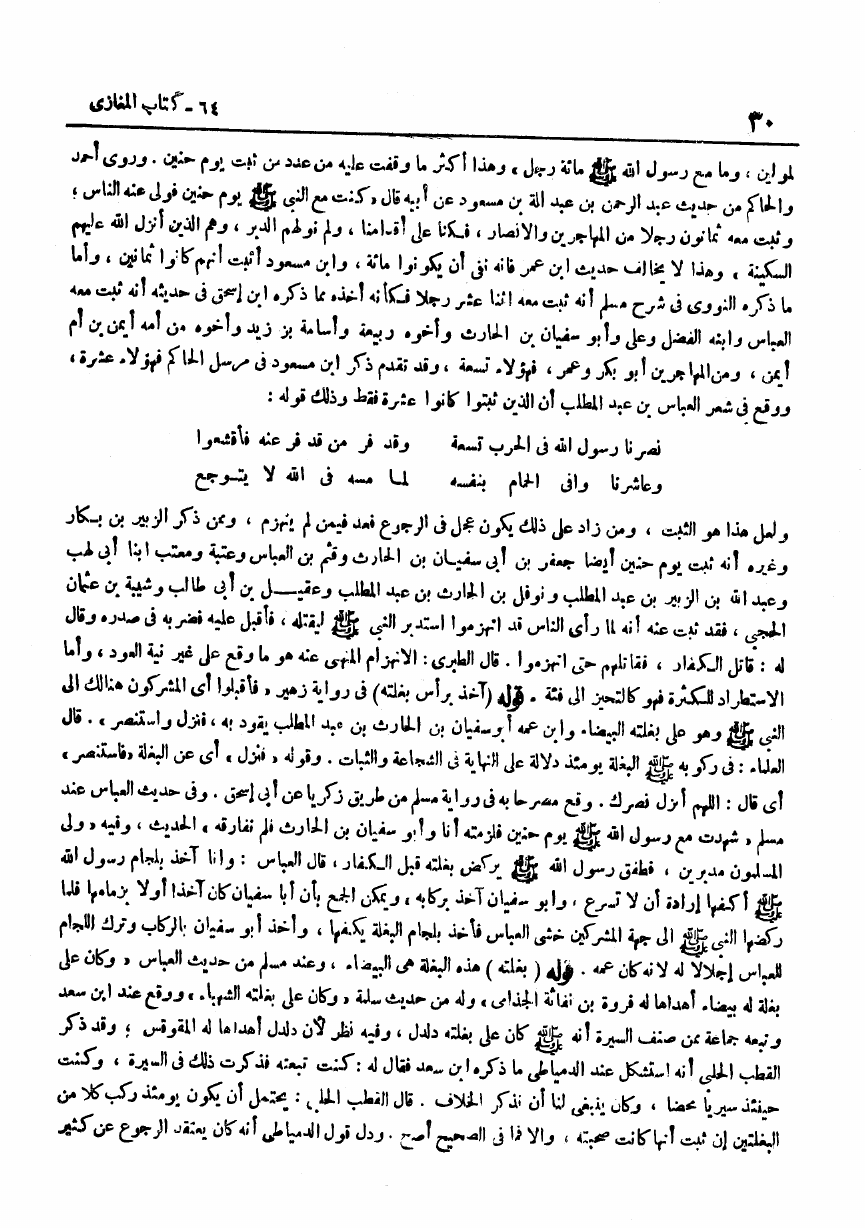 ٣٠
٦٤ - كتاب المغازى
لموليين ، وما مع رسول الله ﷺ مائة رجل ، وهذا أكثر ما وقفت عليه من عدد من ثبت يوم حنين . وروى أحمد
والحاكم من حديث عبد الرحمن بن عبد الله بن مسعود عن أبيه قال « كنت مع النبى ﷺ يوم حنين فولى عنه الناس ؛
وثبت معه ثمانون رجلا من المهاجرين والانصار ، فكنا على أقدامنا ، ولم نولهم الدبر ، وهم الذين أنزل الله عليهم
السكينة ، وهذا لا يخالف حديث ابن عمر فانه نفى أن يكونوا مائة ، وابن مسعود أثبت أنهم كانوا ثمانين ، وأما
ما ذكره النووى فى شرح مسلم أنه ثبت معه اثنا عشر رجلا فكأنه أخذه مما ذكره ابن إسحق فى حديثه أنه ثبت معه
العباس وابنه الفضل وعلى وأبو سفيان بن الحارث وأخوه ربيعة وأسامة بن زيد وأخوه من أمه أيمن بن أم
أيمن ، ومن المهاجرين أبو بكر وعمر ، فهؤلاء تسعة ، وقد تقدم ذكر ابن مسعود فى مرسل الحاكم فهؤلاء عشرة ،
ووقع فى شعر العباس بن عبد المطلب أن الذين ثبتوا كانوا عشرة فقط وذلك قوله :
نصرنا رسول الله فى الحرب تسعة وقد فر من قد فر عنه فأقشعوا
وعاشرنا وافى الحمام بنفسه لما مسه فى الله لا يتوجع
ولعل هذا هو الثبت ، ومن زاد على ذلك يكون عجل فى الرجوع فعد فيمن لم ينهزم ، وممن ذكر الزبير بن بكار
وغيره أنه ثبت يوم حنين أيضا جعفر بن أبى سفيان بن الحارث وقثم بن العباس وعتبة ومعتب ابنا أبى لهب
وعبد الله بن الزبير بن عبد المطلب ونوفل بن الحارث بن عبد المطلب وعقيل بن أبى طالب وشيبة بن عثمان
الحجبى ، فقد ثبت عنه أنه لما رأى الناس قد انهزموا استدبر النبى ﷺ ليقتله ، فأقبل عليه فضربه فى صدره وقال
له : قاتل الكفار ، فقاتلهم حتى انهزموا . قال الطبرى : الانهزام المنهى عنه هو ما وقع على غير نية العود ، وأما
الاستطراد للكثرة فهو كالتحيز الى فئة . قوله (آخذ برأس بغلته) فى رواية زهير « فأقبلوا أى المشركون هنالك الى
النبى ﷺ وهو على بغلته البيضاء وابن عمه أبو سفيان بن الحارث بن عبد المطلب يقود به ، فنزل واستنصر » . قال
العلماء : فى ركوبه ﷺ البغلة يومئذ دلالة على النهاية فى الشجاعة والثبات . وقوله « فنزل » أى عن البغلة «فاستنصر»
أى قال : اللهم أنزل نصرك . وقع مصرحا به فى رواية مسلم من طريق زكريا عن أبى إسحق . وفى حديث العباس عند
مسلم « شهدت مع رسول الله ﷺ يوم حنين فلزمته أنا وأبو سفيان بن الحارث فلم نفارقه » الحديث ، وفيه « ولى
المسلمون مدبرين ، فطفق رسول الله ﷺ يركض بغلته قبل الكفار ، قال العباس : وانا آخذ بلجام رسول الله
ﷺ أكفها إرادة أن لا تسرع ، وابو سفيان آخذ بركابه » ويمكن الجمع بأن أبا سفيان كان آخذا أولا بزمامها فلما
ركضها النبى ﷺ الى جهة المشركين خشى العباس فأخذ بلجام البغلة يكفها ، وأخذ أبو سفيان بالركاب وترك اللجام
للعباس إجلالا له لانه كان عمه . قوله ( بغلته ) هذه البغلة هى البيضاء ، وعند مسلم من حديث العباس « وكان على
بغلة له بيضاء أهداها له فروة بن نفاثة الجذامى » وله من حديث سلمة « وكان على بغلته الشهباء » ووقع عند ابن سعد
وتبعه جماعة ممن صنف السيرة أنه ﷺ كان على بغلته دلدل ، وفيه نظر لأن دلدل أهداها له المقوقس ؛ وقد ذكر
القطب الحلبى أنه استشكل عند الدمياطى ما ذكره ابن سعد فقال له : كنت تبعته فذكرت ذلك فى السيرة ، وكنت
حينئذ سيريا محضا ، وكان ينبغى لنا أن نذكر الخلاف . قال القطب الحلبى : يحتمل أن يكون يومئذ ركب كلا من
البغلتين إن ثبت أنها كانت صحبته ، والا فما فى الصحيح أصح . ودل قول الدمياطى أنه كان يعتقد الرجوع عن كثير